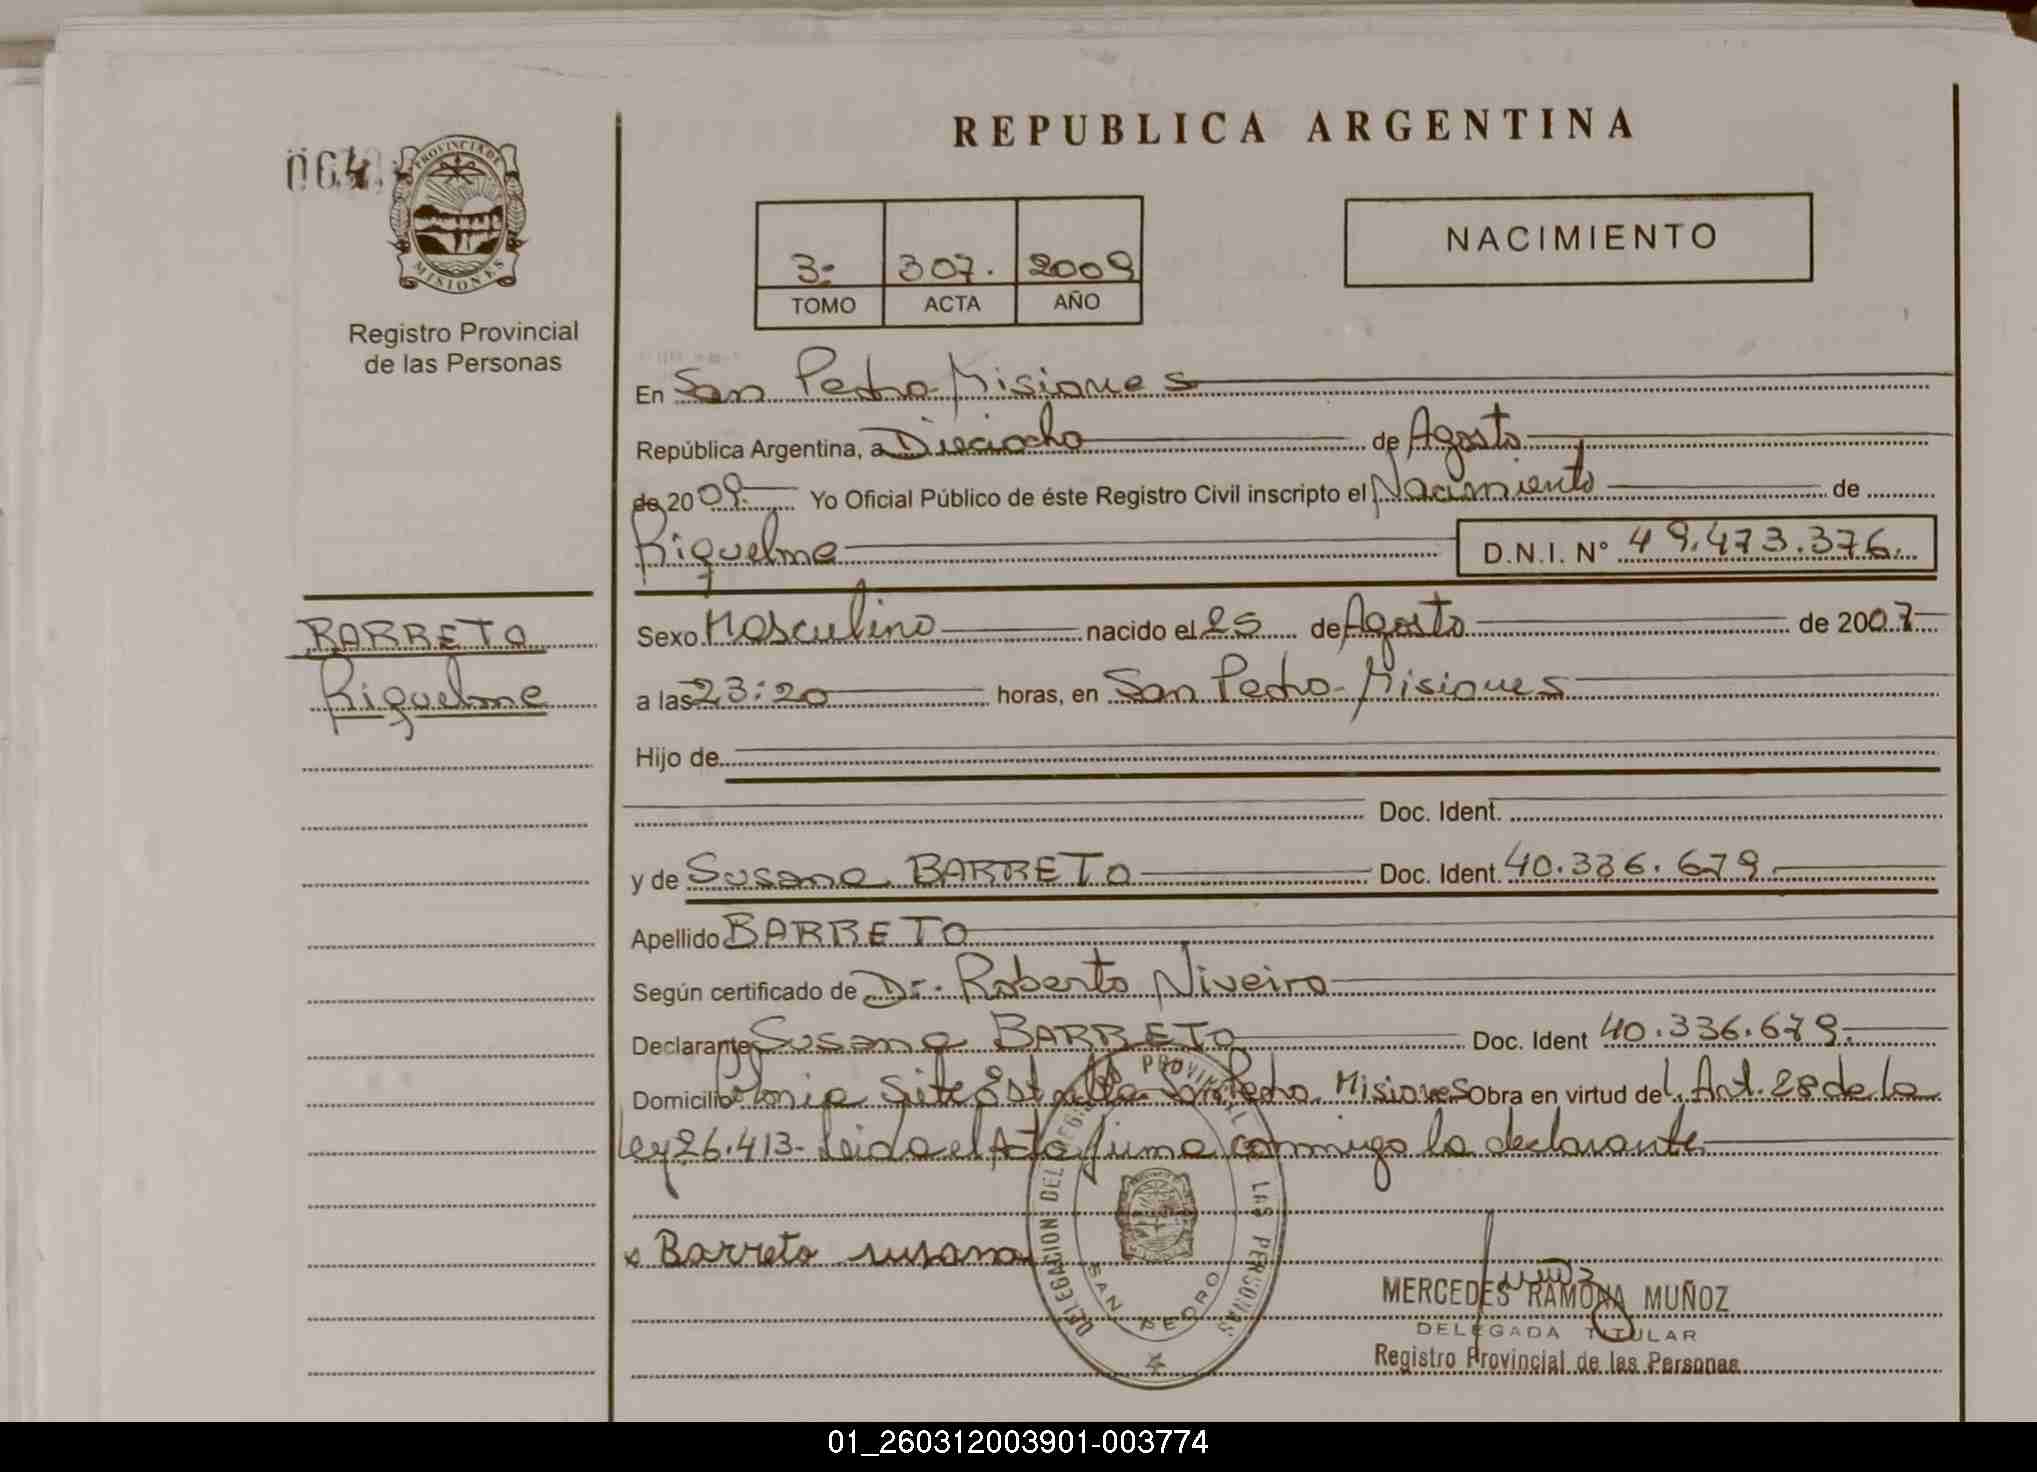 REPUBLICA ARGENTINA
064
PROVINCIA DE
MISIONES
Registro Provincial
de las Personas
3- 307. 2009
TOMO ACTA AÑO
NACIMIENTO
En San Pedro-Misiones
República Argentina, a Dieciocho de Agosto
de 2009. Yo Oficial Público de éste Registro Civil inscripto el Nacimiento de
Riquelme D.N.I. N° 49.473.376.
BARRETO
Riquelme
Sexo Masculino nacido el 25 de Agosto de 2007
a las 23:20 horas, en San Pedro-Misiones
Hijo de
Doc. Ident.
y de Susana BARRETO Doc. Ident. 40.336.679
Apellido BARRETO
Según certificado de Dr. Roberto Niveiro
Declarante Susana BARRETO Doc. Ident 40.336.679.-
Domicilio Colonia Siete Estrellas San Pedro Misiones Obra en virtud del Art. 28 de la
Ley 26.413- Leida el Acta firma conmigo la declarante
x Barreto susana
DELEGACION DEL REGISTRO PROVINCIAL LAS PERSONAS
SAN PEDRO
MERCEDES RAMONA MUÑOZ
DELEGADA TITULAR
Registro Provincial de las Personas
01_260312003901-003774